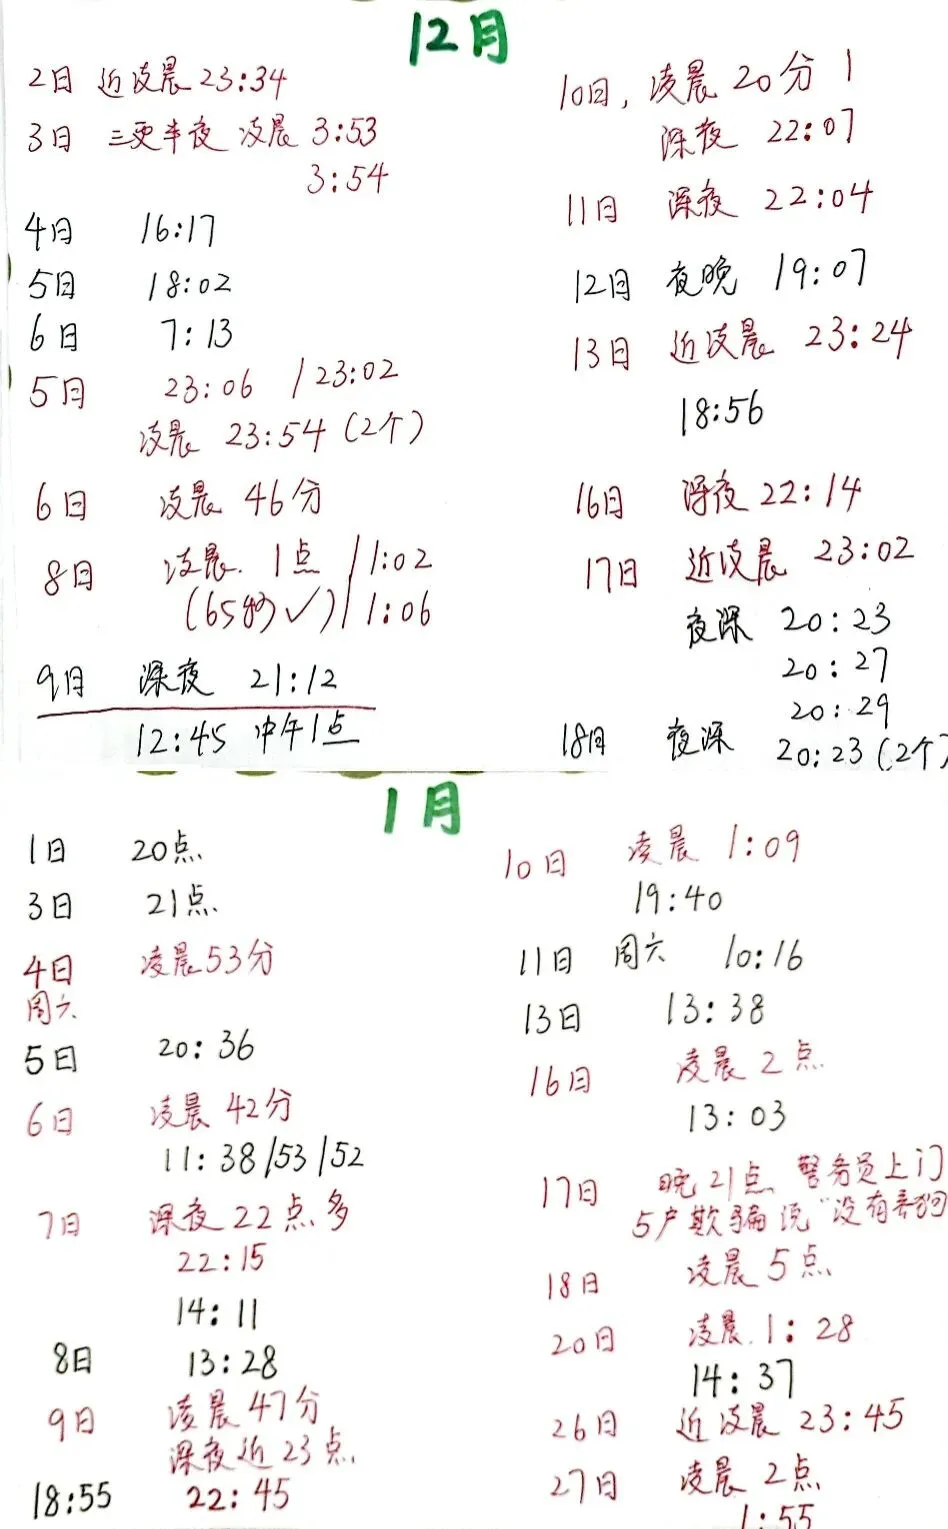 12月
2日 近凌晨 23:34
3日 三更半夜 凌晨 3:53
3:54
4日 16:17
5日 18:02
6日 7:13
5日 23:06 / 23:02
凌晨 23:54 (2个)
6日 凌晨 46分
8日 凌晨. 1点 / 1:02
(65分 ✓) / 1:06
9日 深夜 21:12
12:45 中午1点
10日, 凌晨 20分
深夜 22:07
11日 深夜 22:04
12日 夜晚 19:07
13日 近凌晨 23:24
18:56
16日 深夜 22:14
17日 近凌晨 23:02
夜深 20:23
20:27
20:29
18日 夜深 20:23 (2个)
1月
1日 20点
3日 21点
4日 凌晨53分
周六
5日 20:36
6日 凌晨 42分
11:38/53/52
7日 深夜 22点多
22:15
14:11
8日 13:28
9日 凌晨47分
深夜近23点
18:55 22:45
10日 凌晨 1:09
19:40
11日 周六 10:16
13日 13:38
16日 凌晨 2点
13:03
17日 晚21点 警务员上门
5户欺骗说"没有养狗
18日 凌晨5点
20日 凌晨.1:28
14:37
26日 近凌晨 23:45
27日 凌晨2点
1:55